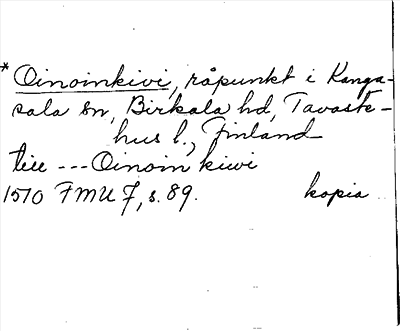 * Oinoinkivi, råpunkt i Kanga-
sala sn, Birkala hd, Tavaste-
hus l., Finland
till --- Oinoin kiwi
1510 FMU 7, s. 89. kopia